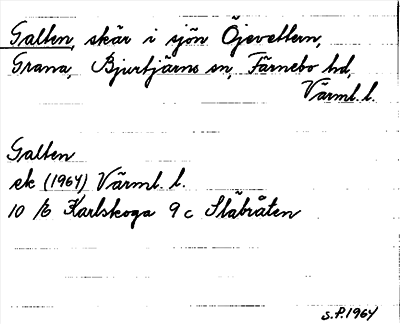 Galten, skär i sjön Öjevettern,
Grana, Bjurtjärns sn, Färnebo hd,
Värml. l.
Galten
ek (1964) Värml. l.
10 /6 Karlskoga 9 c Stäbråten
S.P. 1964